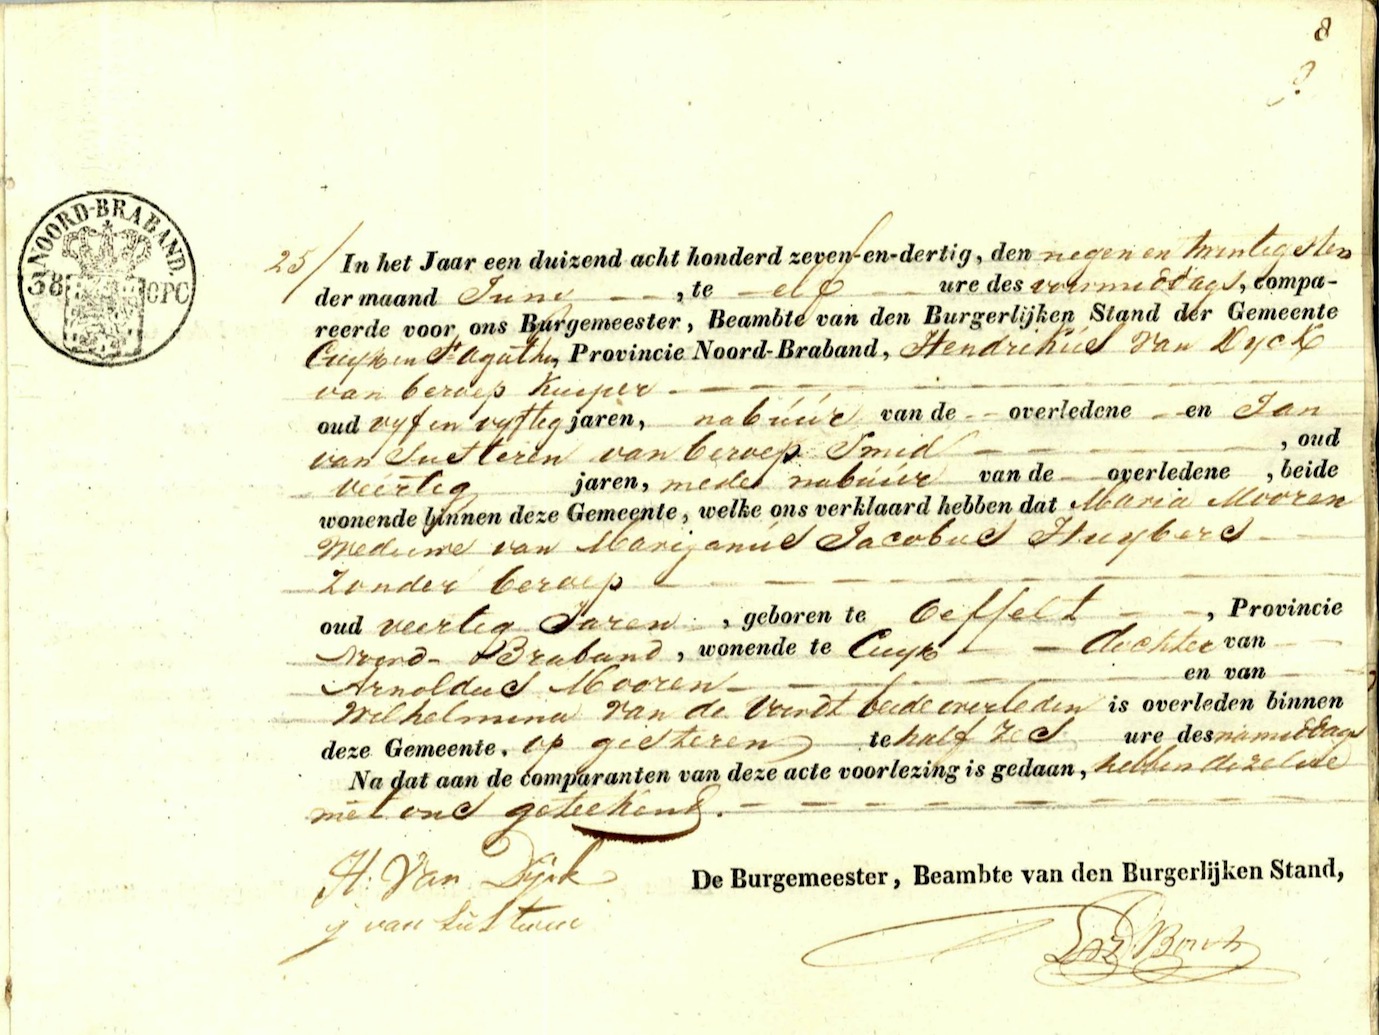 8
NOORD-BRABAND.
38 OPC
25/ In het Jaar een duizend acht honderd zeven-en-dertig, den negen en twintigsten
der maand Juny, te elf ure des voormiddags, compa-
reerde voor ons Burgemeester, Beambte van den Burgerlijken Stand der Gemeente
Cuyk en St. Agatha, Provincie Noord-Braband, Hendrikus van Dyck
van beroep Kuyper
oud vyf en vyftig jaren, nabuur van de overledene en Jan
van Susteren van beroep Smid, oud
veertig jaren, mede nabuur van de overledene, beide
wonende binnen deze Gemeente, welke ons verklaard hebben dat Maria Mooren
Weduwe van Marijanus Jacobus Huybers
zonder beroep
oud veertig Jaren, geboren te Oeffelt, Provincie
Noord-Braband, wonende te Cuyk dochter van
Arnoldus Mooren en van
Wilhelmina van de Voordt beide overleden is overleden binnen
deze Gemeente, op gisteren te half zes ure des namiddags
Na dat aan de comparanten van deze acte voorlezing is gedaan, hebben dezelve
met ons geteekend.
H. Van Dyck
De Burgemeester, Beambte van den Burgerlijken Stand,
J van Susteren